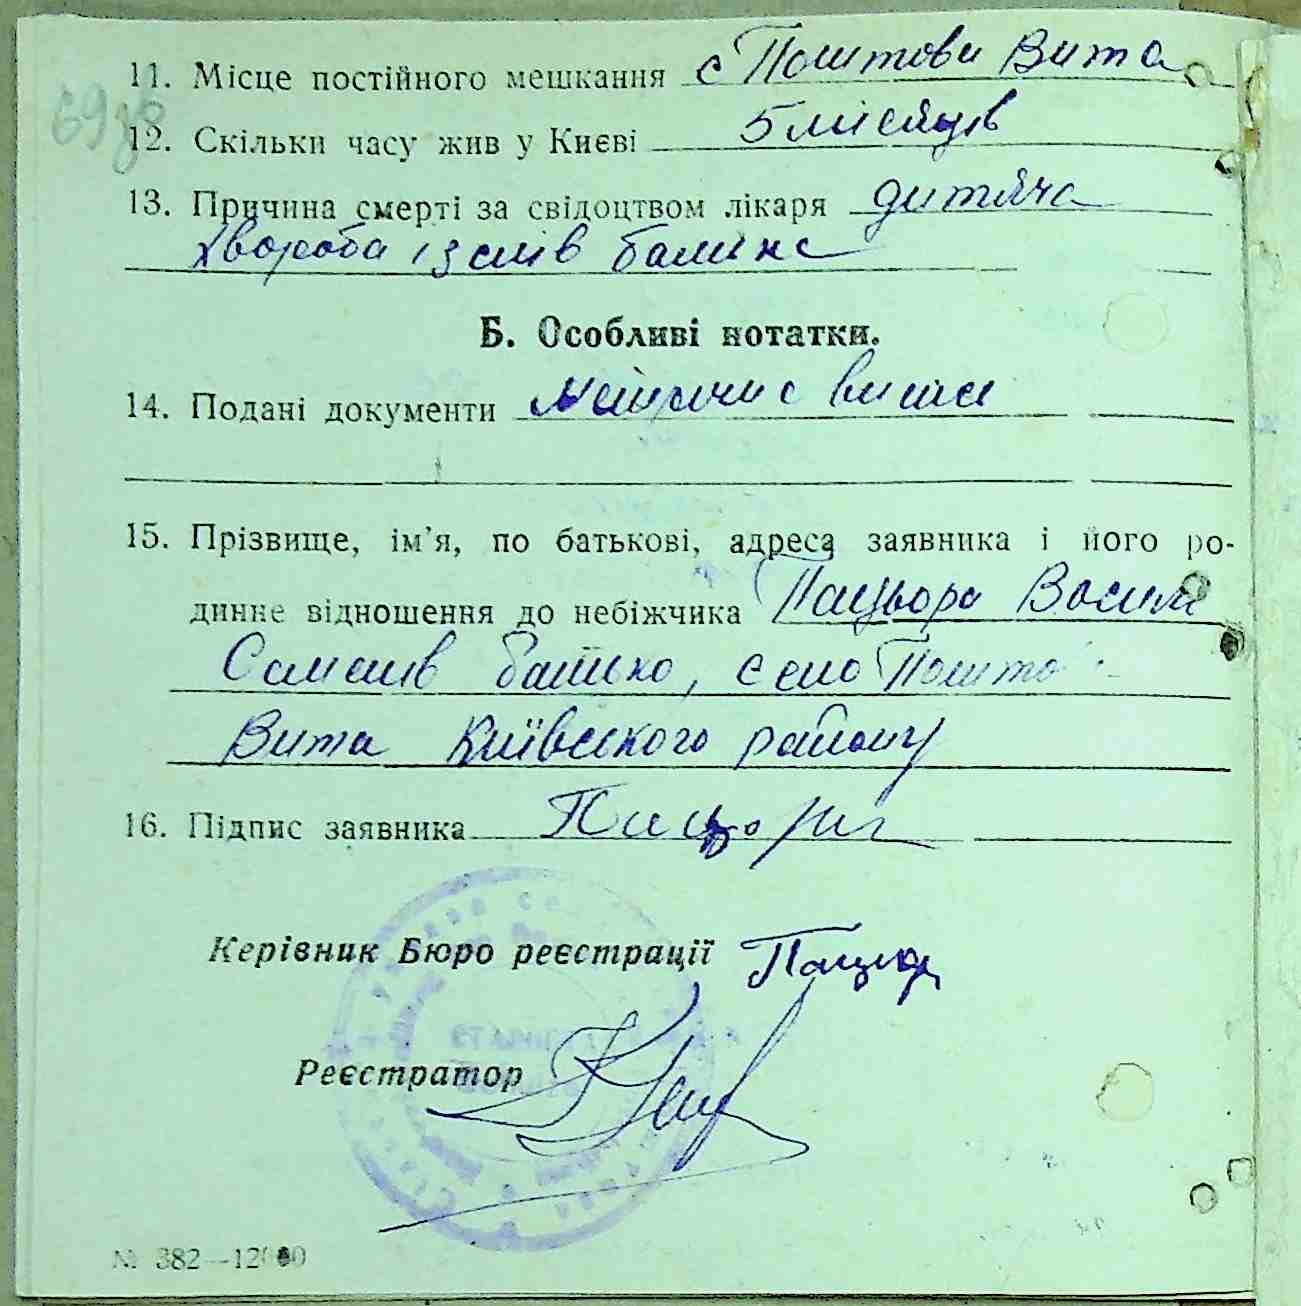 11. Місце постійного мешкання с Поштови Вита
12. Скільки часу жив у Києві 5 місяців
13. Причина смерті за свідоцтвом лікаря дитяча
хвороба із слів батька
Б. Особливі нотатки.
14. Подані документи
15. Прізвище, ім'я, по батькові, адреса заявника і його ро-
динне відношення до небіжчика Пацьора Васил
батько, село Пошто
Вита Київського району
16. Підпис заявника Пацьора
Керівник Бюро реєстрації
Реєстратор
№ 382—12000